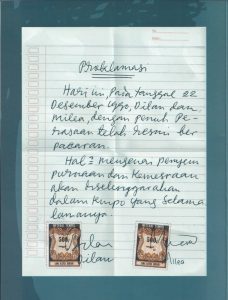 Proklamasi
Hari ini, pada tanggal 22
Desember 1990, Dilan dan
Milea, dengan penuh Pe-
rasaan telah resmi ber
pacaran.
Hal2 mengenai penyem
purnaan dan kemesraan
akan diselenggarakan
dalam tempo yang selama
lamanya.
500
500
Dilan
Milea